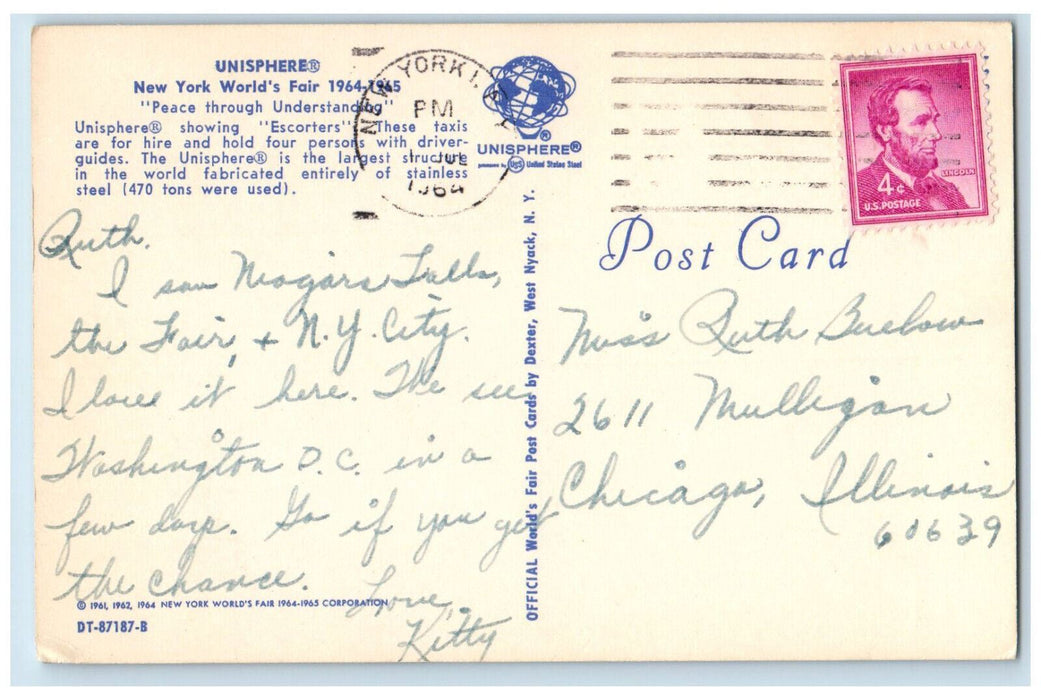 UNISPHERE®
New York World's Fair 1964-1965
"Peace through Understanding"
Unisphere® showing "Escorters". These taxis
are for hire and hold four persons with driver-
guides. The Unisphere® is the largest structure
in the world fabricated entirely of stainless
steel (470 tons were used).
NEW YORK 1, N.Y.
PM
JUL
1964
UNISPHERE®
presented by USS United States Steel
LINCOLN
4¢
U.S. POSTAGE
Post Card
Ruth.
I saw Niagara Falls,
the Fair, + N.Y. City.
I love it here. The see
Washington D.C. in a
few days. Go if you get
the chance.
Love,
Kitty
© 1961, 1962, 1964 NEW YORK WORLD'S FAIR 1964-1965 CORPORATION
DT-87187-B
OFFICIAL World's Fair Post Cards by Dexter, West Nyack, N. Y.
Miss Ruth Buelow
2611 Mulligan
Chicago, Illinois
60639